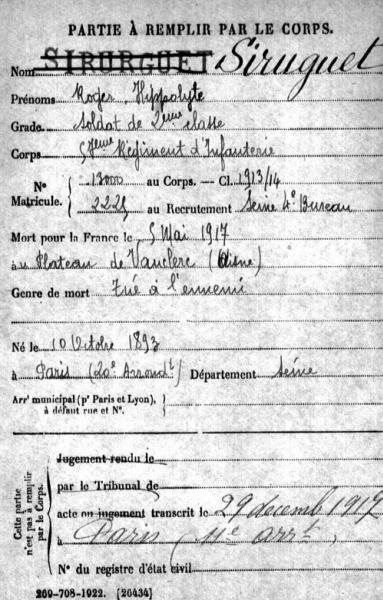 PARTIE À REMPLIR PAR LE CORPS.
Nom SIRURGUET Siruguet
Prénoms Roger, Hippolyte
Grade soldat de 2ème classe
Corps 57ème Régiment d'Infanterie
N° Matricule. 13000 au Corps. — Cl. 1913/14
2225 au Recrutement Seine 4e Bureau
Mort pour la France le 5 Mai 1917
à Plateau de Vauclerc (Aisne)
Genre de mort Tué à l'ennemi
Né le 10 Octobre 1893
à Paris (20e Arrondt) Département Seine
Arrt municipal (pr Paris et Lyon), à défaut rue et N°.
Cette partie n'est pas à remplir par le Corps.
Jugement rendu le
par le Tribunal de
acte ou jugement transcrit le 29 décemb 1917
à Paris (11e arrt)
N° du registre d'état civil
269-708-1922. [26434]